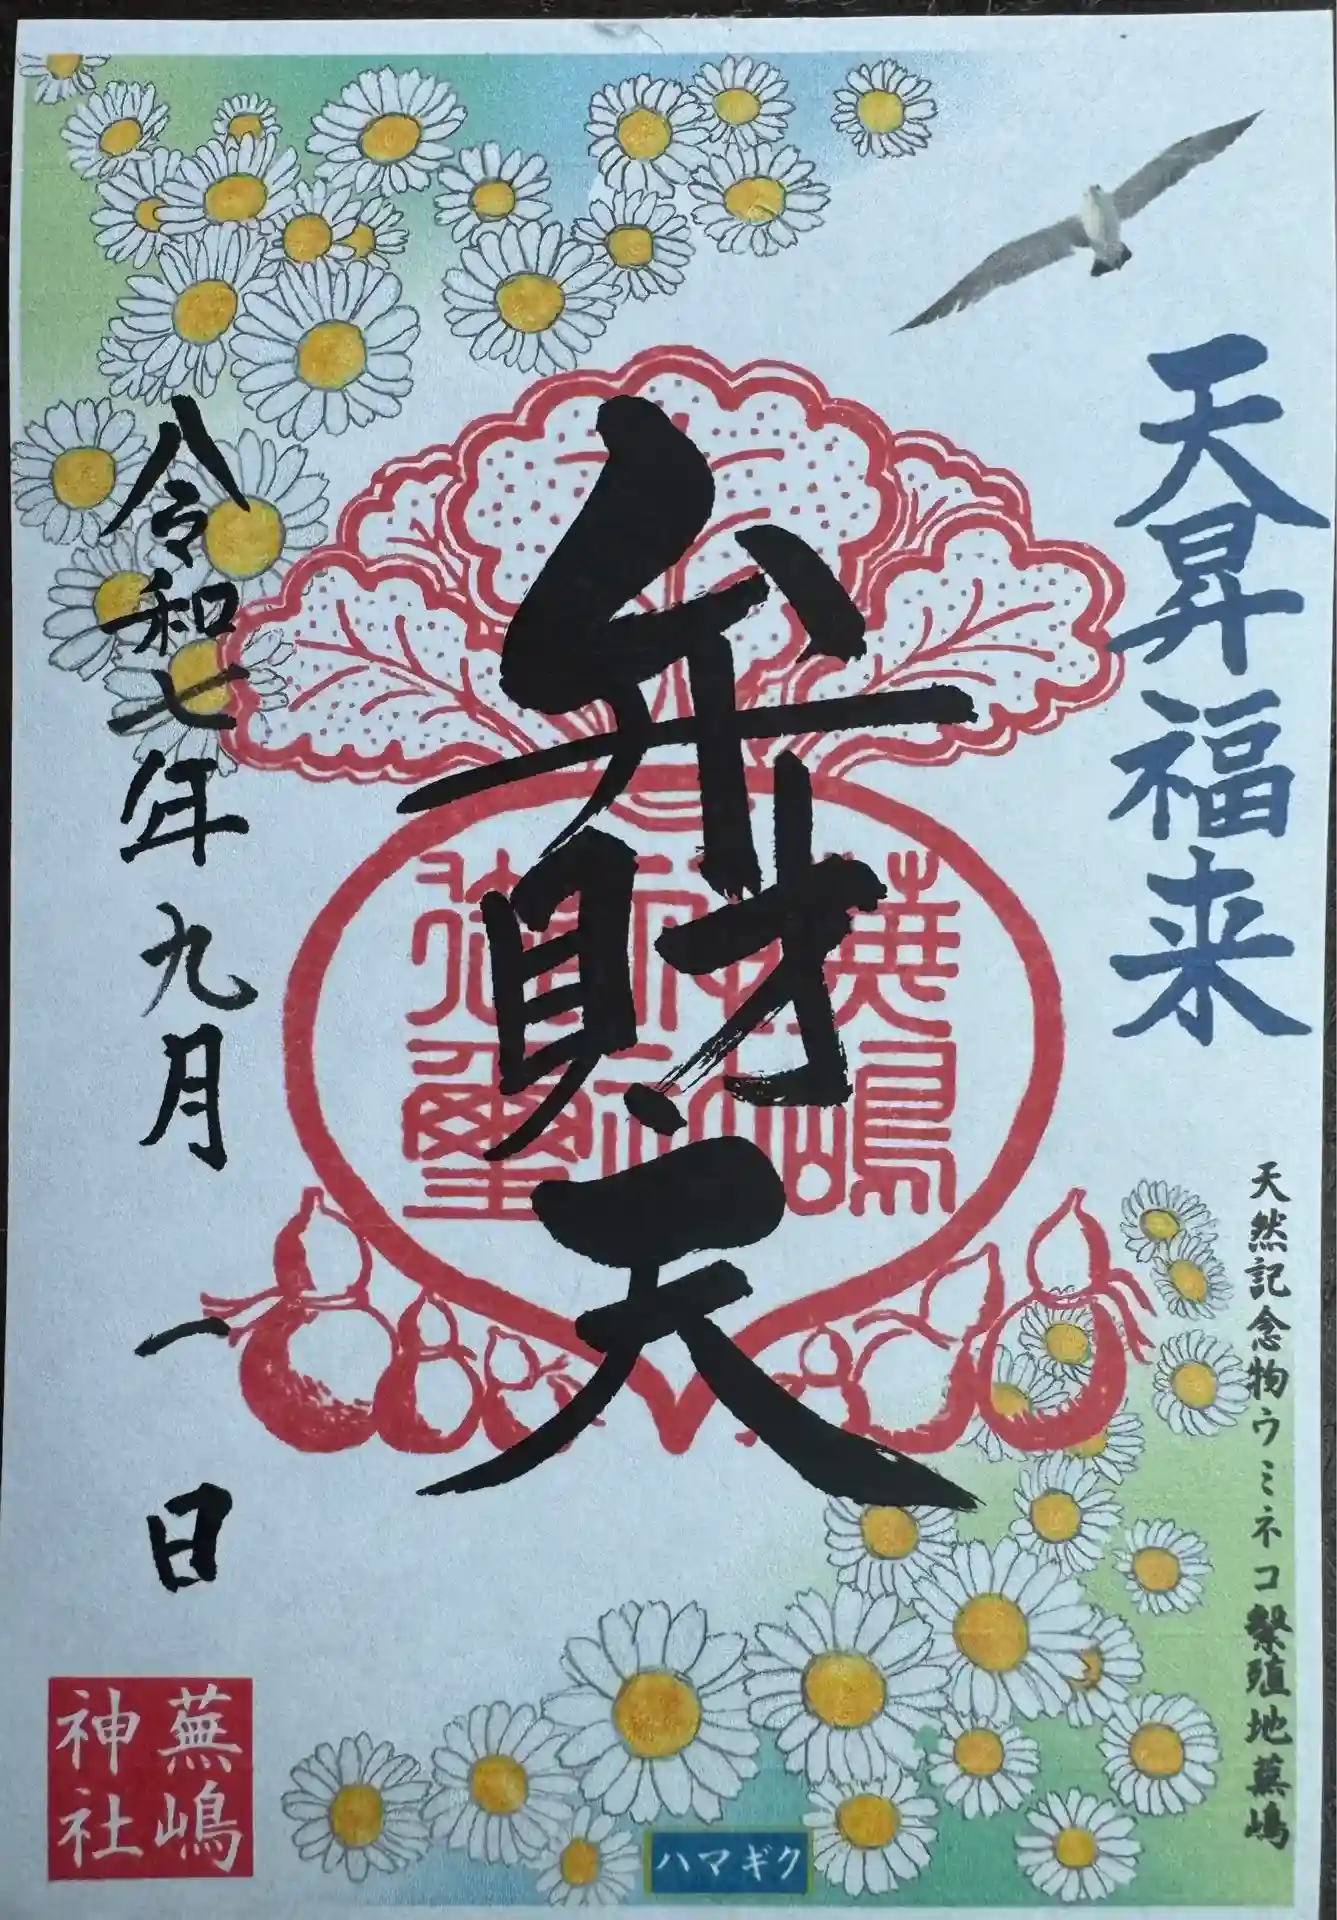 天昇福来
天然記念物ウミネコ繫殖地蕪嶋
弁財天
蕪嶋
神社
御璽
令和七年九月一日
蕪嶋
神社
ハマギク